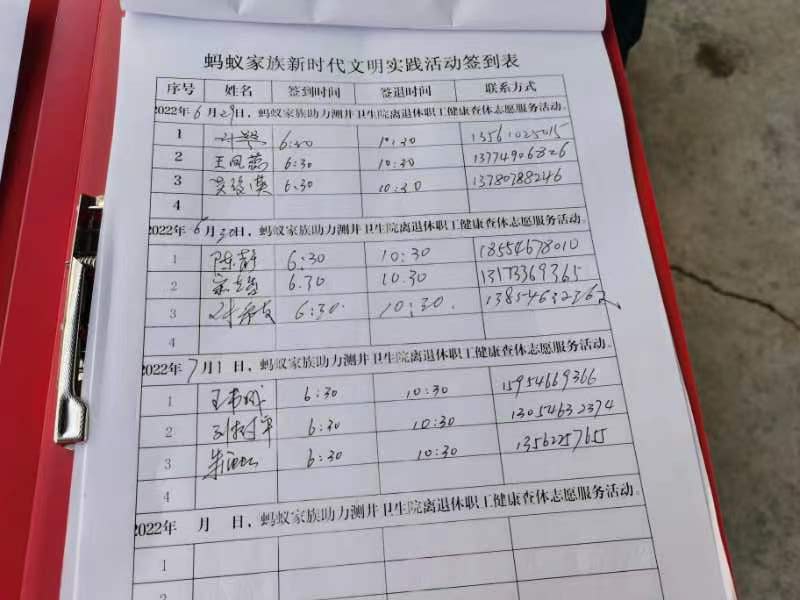 蚂蚁家族新时代文明实践活动签到表
序号 姓名 签到时间 签退时间 联系方式
2022年6月29日，蚂蚁家族助力测井卫生院离退休职工健康查体志愿服务活动。
1 6:30 10:30
2 王凤蕊 6:30 10:30 13774906826
3 6:30 10:30 13780788246
4
2022年6月30日，蚂蚁家族助力测井卫生院离退休职工健康查体志愿服务活动。
1 陈静 6:30 10:30 18554678010
2 6.30 10.30 13173369365
3 6:30. 10:30.
4
2022年7月1日，蚂蚁家族助力测井卫生院离退休职工健康查体志愿服务活动。
1 6:30 10:30 15954669366
2 刘树军 6:30 10:30 13054632374
3 6:30 10:30 13562257655
4
2022年 月 日，蚂蚁家族助力测井卫生院离退休职工健康查体志愿服务活动。
1
2